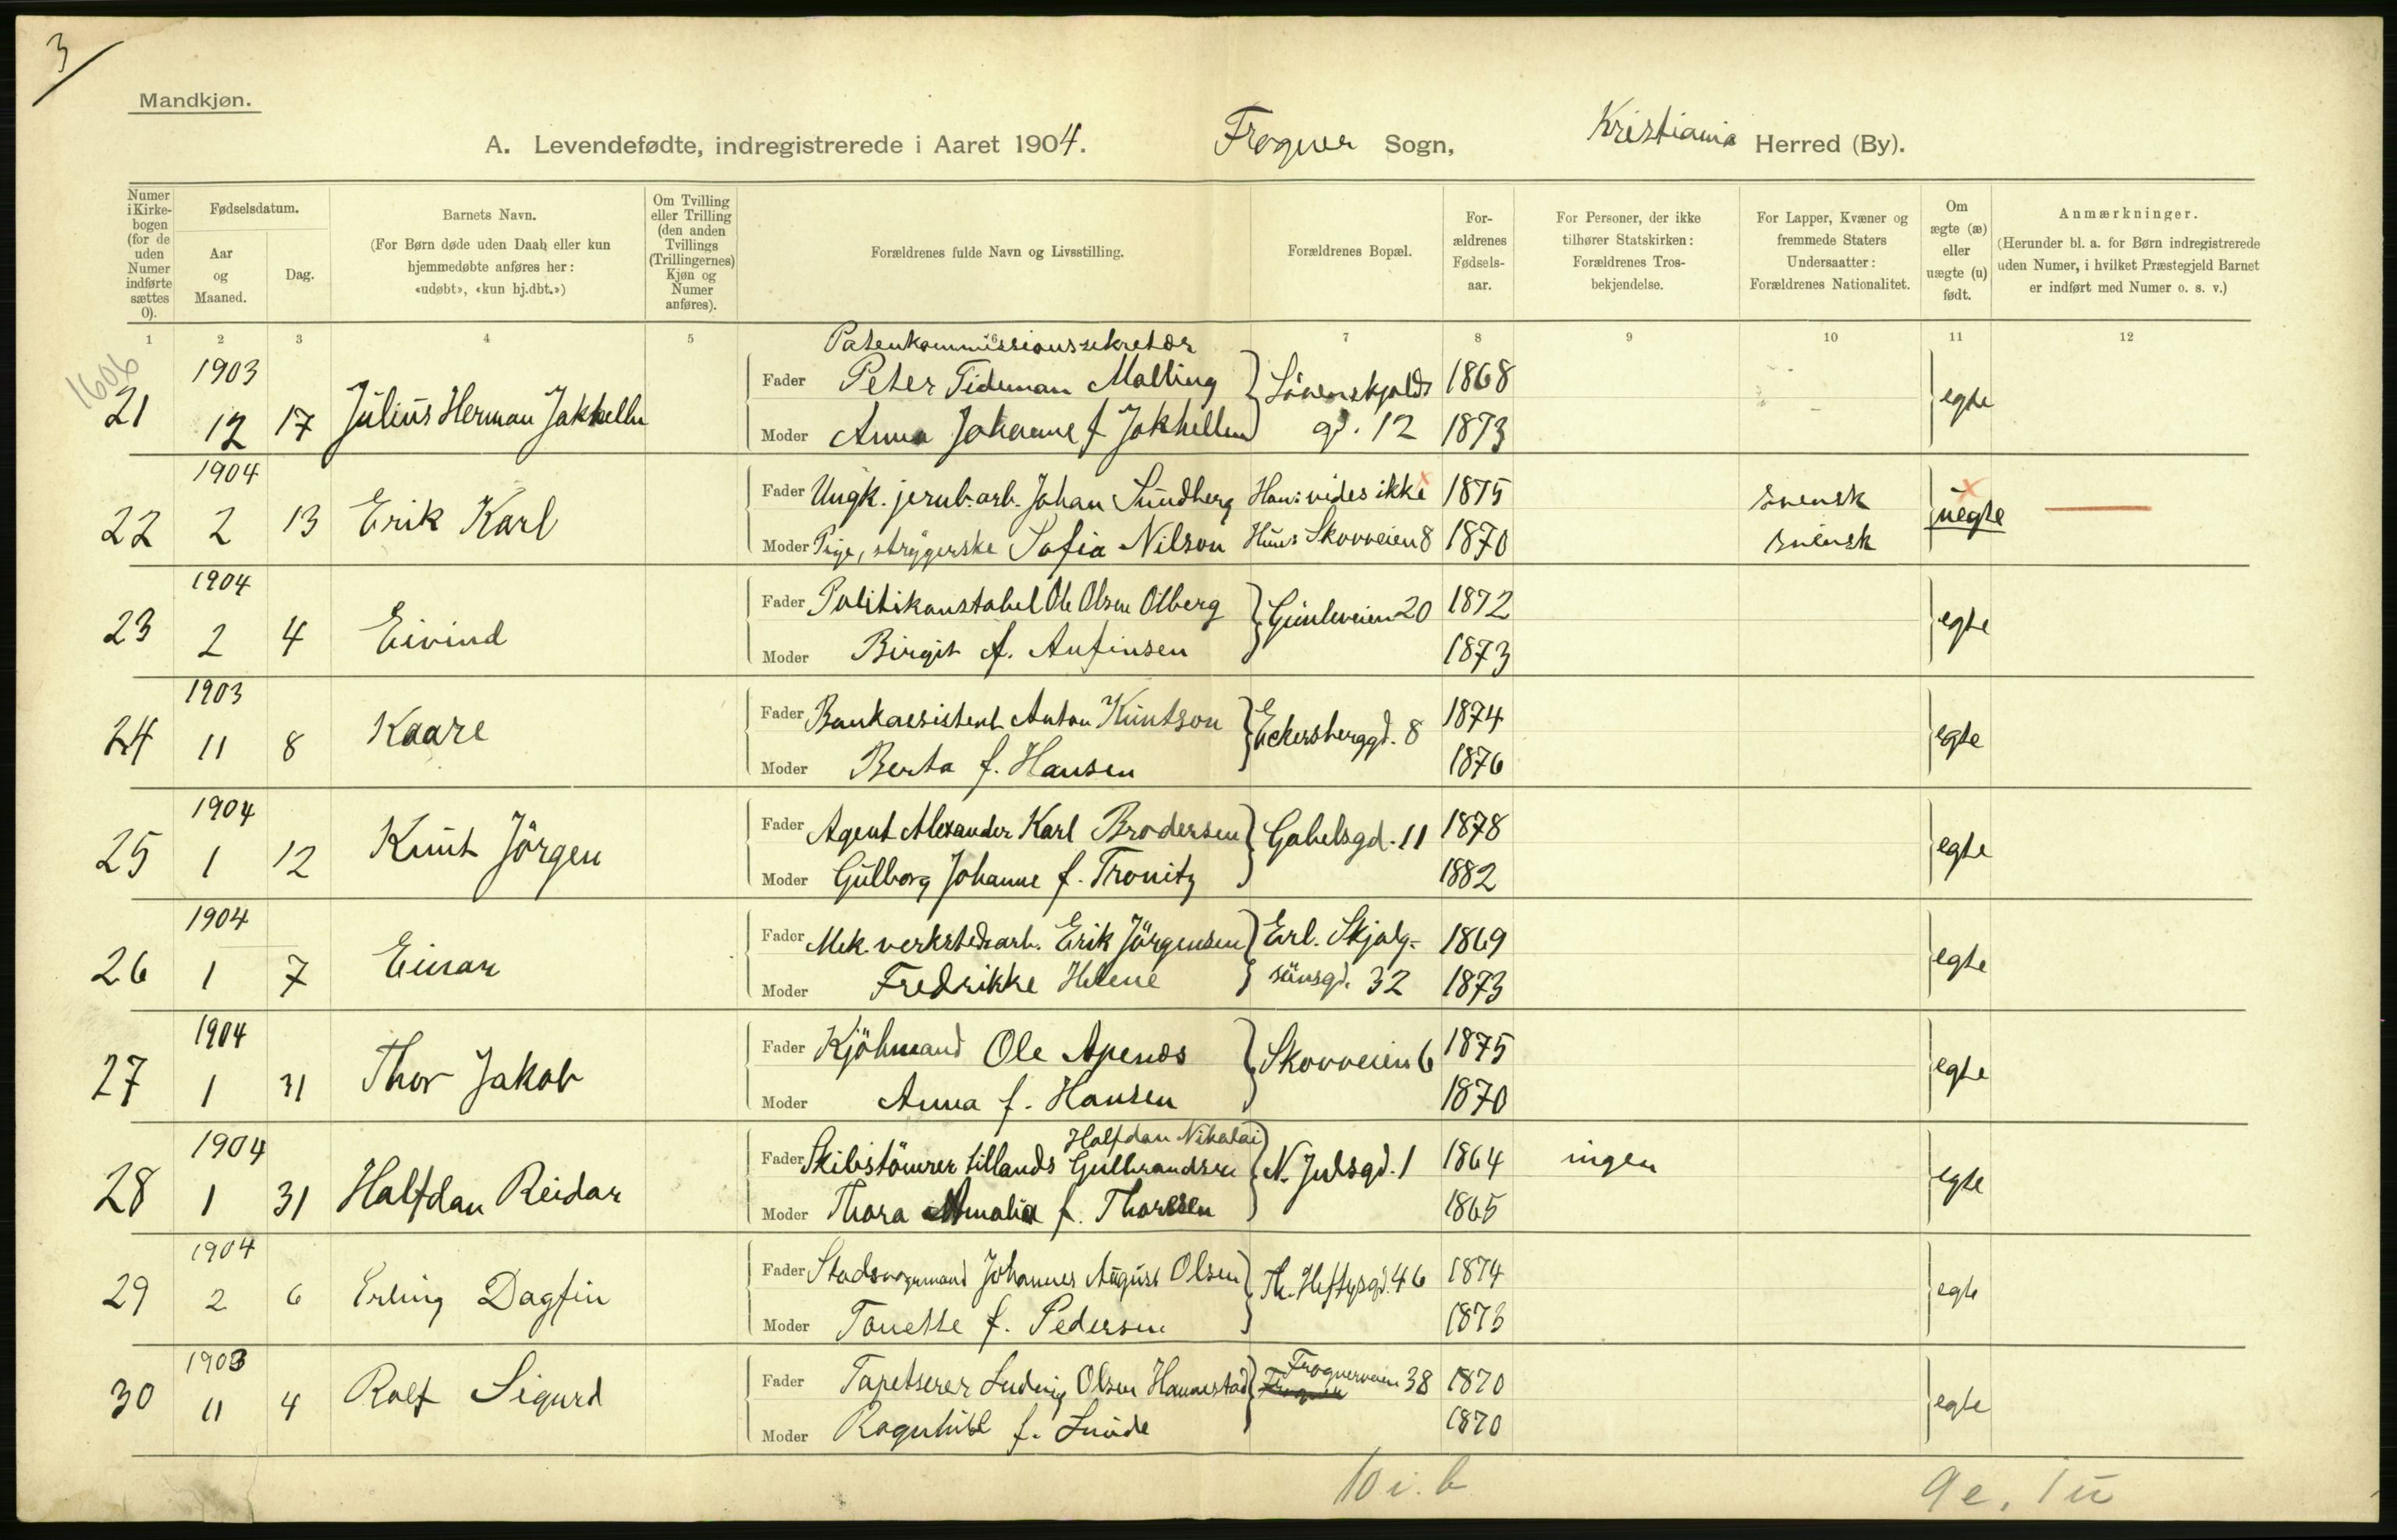 3
Mandkjøn.
A. Levendefødte, indregistrerede i Aaret 1904. Frogner Sogn, Kristiania Herred (By).
Numer i Kirkebogen (for de uden Numer indførte sættes 0).
Fødselsdatum.
Aar og Maaned.
Dag.
Barnets Navn.
(For Børn døde uden Daab eller kun hjemmedøbte anføres her: «udøbt», «kun hj.dbt.»)
Om Tvilling eller Trilling (den anden Tvillings (Trillingernes) Kjøn og Numer anføres).
Forældrenes fulde Navn og Livsstilling.
Forældrenes Bopæl.
Forældrenes Fødselsaar.
For Personer, der ikke tilhører Statskirken: Forældrenes Trosbekjendelse.
For Lapper, Kvæner og fremmede Staters Undersaatter: Forældrenes Nationalitet.
Om ægte (æ) eller uægte (u) født.
Anmærkninger.
(Herunder bl. a. for Børn indregistrerede uden Numer, i hvilket Præstegjeld Barnet er indført med Numer o. s. v.)
1 2 3 4 5 7 8 9 10 11 12
1606
Patenkommissionssekretær
21 1903 12 17 Julius Herman Jakhelln
Fader Peter Tideman Malling Lövenskjolds 1868 egte
Moder Anna Johanne f Jakhellen gd. 12 1873
22 1904 2 13 Erik Karl
Fader Ungk. jernb.arb. Johan Sundberg Han: vides ikke x 1875 svensk x uegte
Moder Pige, strygerske Sofia Nilson Huns Skovveien 8 1870 svensk
23 1904 2 4 Eivind
Fader Politikonstabel Ole Olsen Olberg Gimleveien 20 1872 egte
Moder Birgit f. Anfinsen 1873
24 1903 11 8 Kaare
Fader Bankassistent Anton Knutson Eckersberggd. 8 1874 egte
Moder Berta f. Hansen 1876
25 1904 1 12 Knut Jörgen
Fader Agent Alexander Karl Brodersen Gabelsgd. 11 1878 egte
Moder Gulborg Johanne f. Tronitz 1882
26 1904 1 7 Einar
Fader Mek. verkstedsarb. Erik Jörgensen Erl. Skjalg- 1869 egte
Moder Fredrikke Helene sünsgd. 32 1873
27 1904 1 31 Thor Jakob
Fader Kjöbmand Ole Apenes Skovveien 6 1875 egte
Moder Anna f. Hansen 1870
28 1904 1 31 Halfdan Reidar
Halfdan Nikolai
Fader Skibstömrer tillands Gulbrandsen N. Juelsgd. 1 1864 ingen egte
Moder Thora Amalia f. Thoresen 1865
29 1904 2 6 Erling Dagfin
Fader Stadsvognmand Johannes August Olsen Th. Heftysgd. 46 1874 egte
Moder Tonette f. Pedersen 1873
30 1903 11 4 Rolf Sigurd
Fader Tapetserer Ludvig Olsen Hannestad Frogner Frognerveien 38 1870 egte
Moder Ragnhild f. Lunde 1870
10 i. b 9 e, 1 u